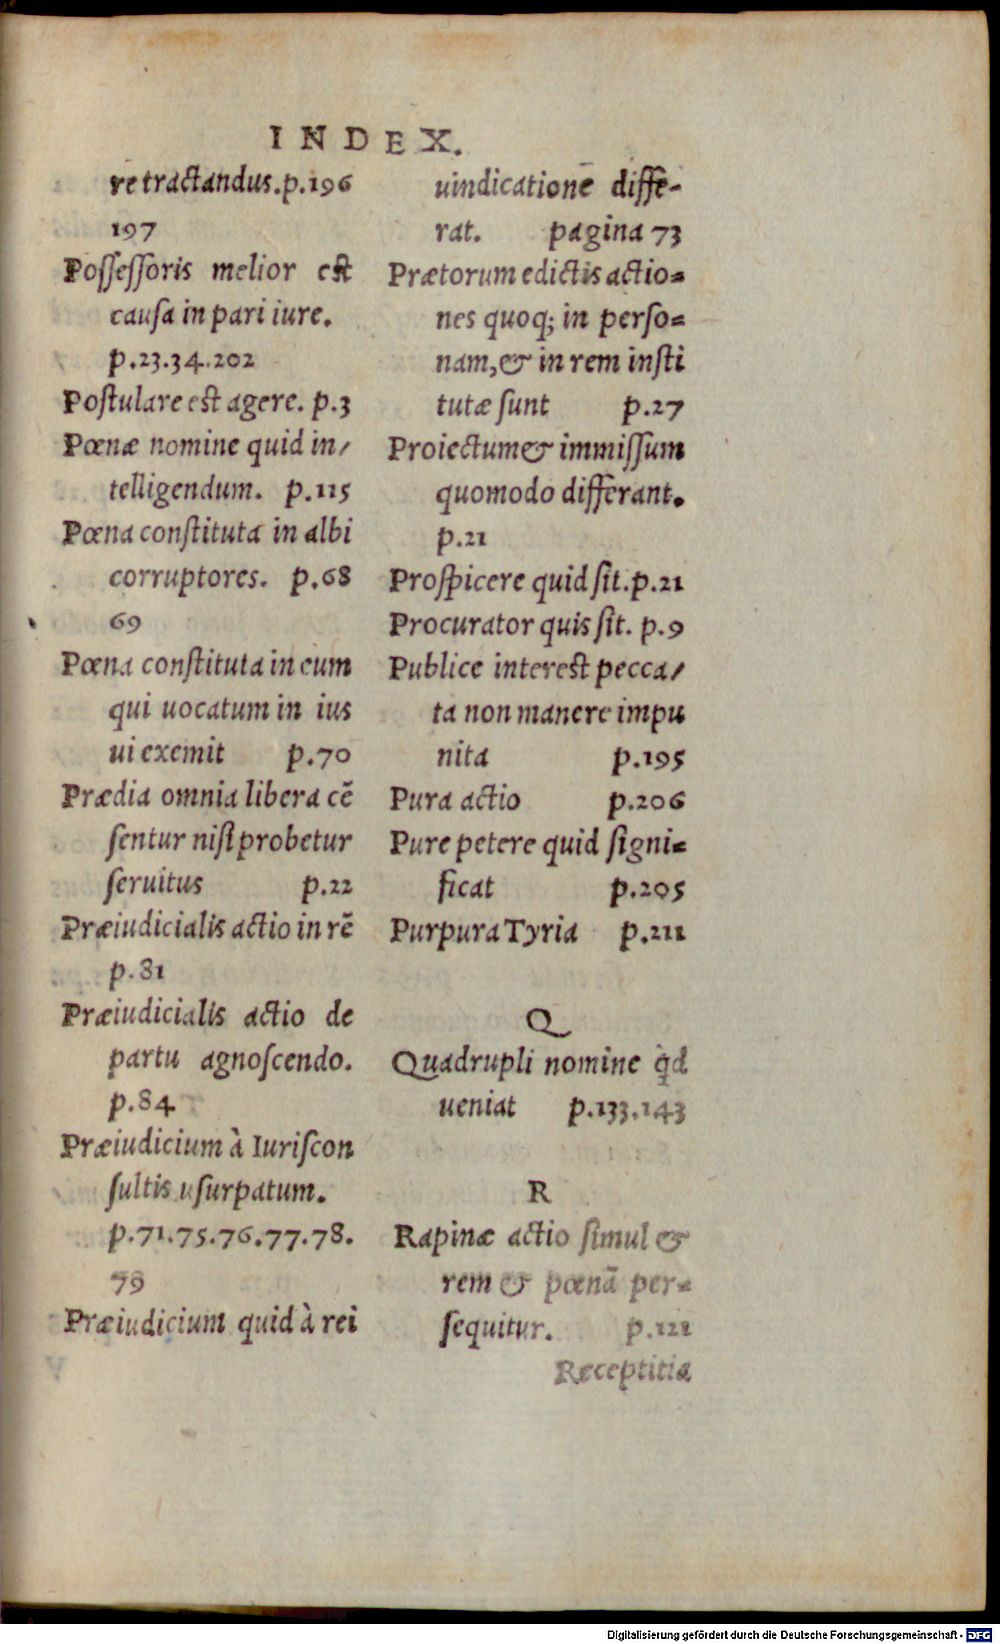 INDEX.
retractandus.p.196
197
Poſſeſſoris melior est
cauſa in pari iure.
p.23.34.202
Poſtulare est agere. p.3
Pœnæ nomine quid in/
telligendum. p.115
Pœna conſtituta in albi
corruptores. p.68
69
Pœna conſtituta in eum
qui uocatum in ius
ui exemit p.70
Prædia omnia libera cẽ
ſentur niſi probetur
ſeruitus p.22
Præiudicialis actio in rẽ
p.81
Præiudicialis actio de
partu agnoſcendo.
p.84
Præiudicium à Iuriſcon
ſultis uſurpatum.
p.71.75.76.77.78.
79
Præiudicium quid à rei
uindicationẽ diffe-
rat. pagina 73
Prætorum edictis actio=
nes quoq; in perſo=
nam,& in rem inſti
tutæ ſunt p.27
Proiectum & immiſſum
quomodo differant.
p.21
Proſpicere quid ſit.p.21
Procurator quis ſit. p.9
Publice interest pecca/
ta non manere impu
nita p.195
Pura actio p.206
Pure petere quid ſigni=
ficat p.205
Purpura Tyria p.211
Q
Quadrupli nomine qd
ueniat p.133.143
R
Rapinæ actio ſimul &
rem & pœnã per=
ſequitur. p.121
Receptitia
Digitalisierung gefördert durch die Deutsche Forschungsgemeinschaft - DFG